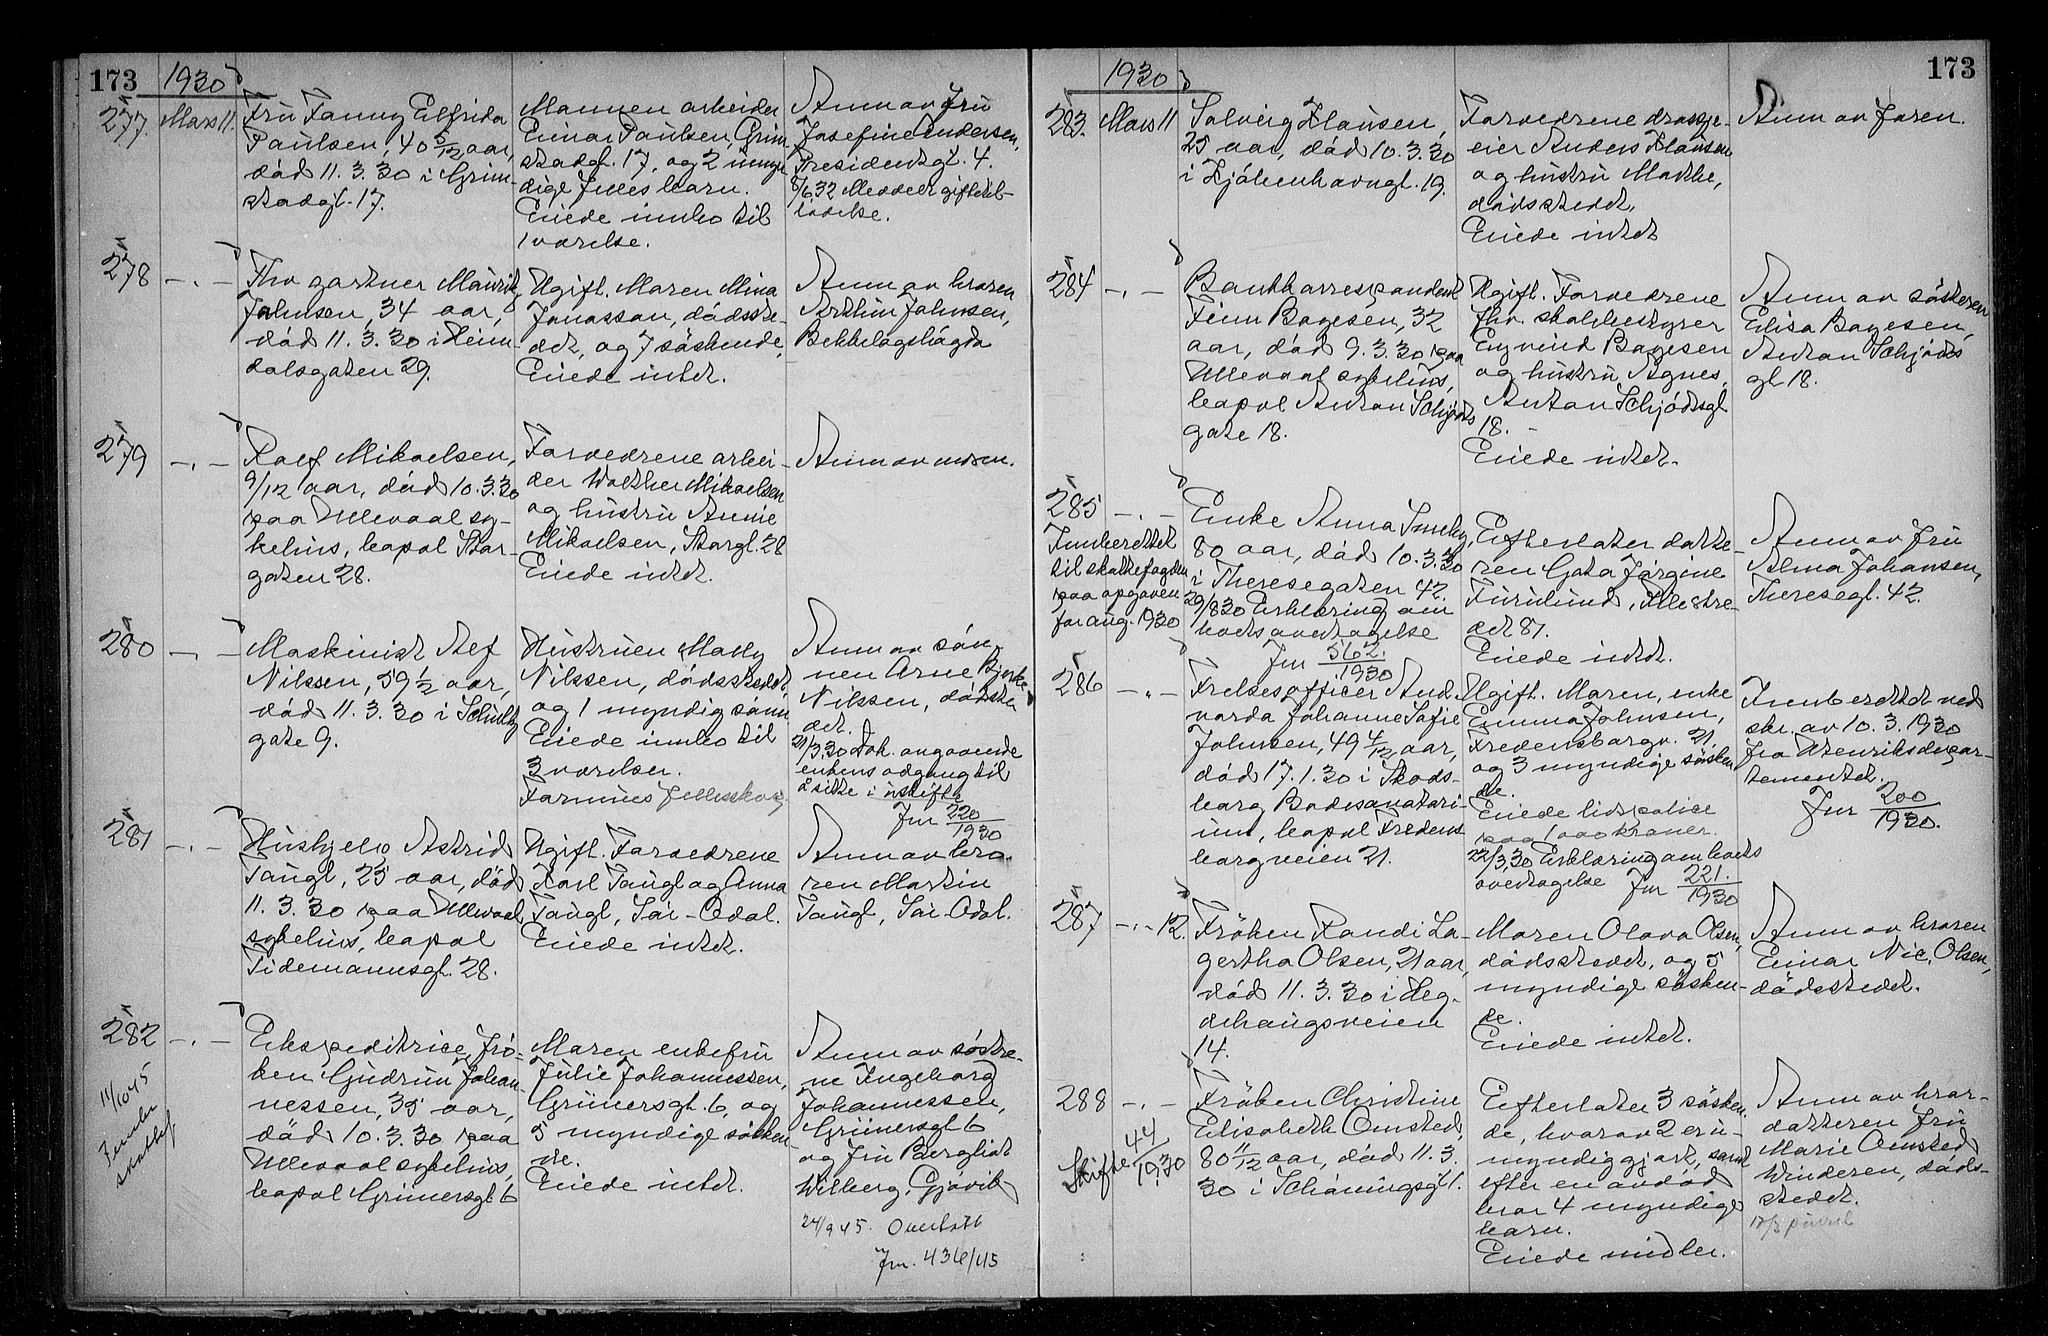 173 1930
277. Mars 11.
Fru Fanny Elfrida
Paulsen, 40 5/12 aar,
död 11. 3. 30 i Grim-
stadgt. 17.
Mannen arbeider
Einar Paulsen, Grim-
stadgt. 17, og 2 umyn-
dige felles barn.
Eiede innbo til
1 værelse.
Anm av fru
Josefine Andersen,
Presidentgt. 4.
8/6 32 Meddelt giftetil-
ladelse.
278 -.-
Fhv gartner Mauritz
Johnsen, 34 aar,
död 11. 3. 30 i Heim-
dalsgaten 29.
Ugift. Moren Mina
Jonasson, dödsste-
det, og 7 söskende.
Eiede intet.
Anm av broren
Arthur Johnsen,
Bekkelagshögda
279 -.-
Rolf Mikaelsen,
9/12 aar, död 10. 3. 30
paa Ullevaal sy-
kehus, bopal Stor-
gaten 28.
Forældrene arbei-
der Walther Mikaelsen
og hustru Annie
Mikaelsen, Storgt. 28
Eiede intet.
Anm av moren.
280 -.-
Maskinist Alf
Nilssen, 59 1/2 aar,
död 11. 3. 30 i Schultz
gate 9.
Hustruen Mally
Nilssen, dödsstedet,
og 1 myndig sönn
Eiede innbo til
3 værelser.
Formues fellesskap
Anm av sön-
nen Arne Bjerke
Nilssen, dödsste
det.
21/3.30 Dok. angaaende
enkens adgang til
å sitte i uskifte
Jnr 220/1930
281 -.-
Hushjelp Astrid
Taugl, 25 aar, död
11. 3. 30 paa Ullevaal
sykehus, bopal
Tidemannsgt. 28.
Ugift. Forældrene
Karl Taugl og Anna
Taugl, Sör-Odal.
Eiede intet.
Anm av bro-
ren Martin
Taugl, Sör-Odal.
282 -.-
11/10 45
skattef
Ekspeditrice, frö-
ken Gudrun Johan-
nessen, 35 aar,
död 10. 3. 30 paa
Ullevaal sykehus,
bopal Grünersgt. 6
Moren enkefru
Julie Johannessen,
Grünersgt. 6, og
5 myndige sösken
de.
Eiede intet.
Anm av söstre-
ne Ingeborg
Johannessen,
Grünersgt 6
og fru Bergliot
Wilberg, Gjövik
24/9 45. Overlatt
Jnr. 436/45
1930 173
283. Mars 11
Solveig Klausen,
25 aar, död 10. 3. 30
i Kjöbenhavngt. 19.
Forældrene drosje-
eier Anders Klausen
og hustru Marthe,
dödsstedet.
Eiede intet
Anm av faren.
284 -.-
Bankkorrespondent
Finn Bogesen, 32
aar, död 9. 3. 30 paa
Ullevaal sykehus,
bopal Anton Schjöts
gate 18.
Ugift. Forældrene
fhv. skolebestyrer
Eyvind Bogesen
og hustru Agnes,
Anton Schjödtsgt
18. -
Eiede intet.
Anm av sösteren
Elisa Bogesen,
Anton Schjöts
gt 18.
285 -.-
Innberettet
til skattefogden
paa opgaven
for aug. 1930
Enke Anna Smeby,
80 aar, död 10. 3. 30
i Theresegaten 42.
29/8 30 Erklæring om
bosovertagelse
Jnr 562/1930
Efterlater datte-
ren Gota Jörgine
Furulund, Kllestre-
det 81.
Eiede intet.
Anm av fru
Alma Johansen,
Theresegt. 42.
286 -.-
Frelsesofficer And-
varda Johanne Sofie
Johnsen, 49 4/12 aar,
död 17. 1. 30 i Skods-
borg Badesanatori-
um, bopal Fredens-
borgveien 21.
Ugift. Moren, enke
Emma Johnsen,
Fredensborgv. 21,
og 3 myndige sösken
de.
Eiede livspolice
paa 1000 kroner.
22/3.30 Erklæring om boets
overtagelse Jnr 221./1930
Innberettet ved
skr. av 10. 3. 1930
fra Utenriksdepar-
tementet.
Jnr 200/1930.
287 -.- 12.
Fröken Randi La-
gertha Olsen, 21 aar,
död 11. 3. 30 i Heg-
dehaugsveien
14.
Moren Olava Olsen,
dödsstedet, og 5
myndige sösken-
de.
Eiede intet.
Anm av broren
Einar Nic. Olsen,
dödsstedet.
288 -.-
Skifte 44/1930
Fröken Christine
Elisabeth Omsted,
80 1/12 aar, död 11. 3.
30 i Schöningsgt 1.
Efterlater 3 sösken
de, hvorav 2 er u-
myndiggjort, samt
efter en avdöd
bror 4 myndige
barn.
Eiede midler.
Anm av bror-
datteren fru
Marie Omsted
Winderen, döds-
stedet.